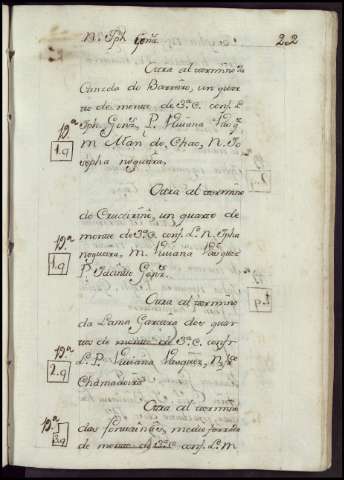 N. Jph Gonz.
22
Otra al termino
Caneda do Barreiro, un quar
to de monte de 3ª C. conf. L.
Jph Gonz. P. Viviana Vasq.
M. Alan do Chao, N. Jo
sepha nogueira.
1.q
Otra al termino
do Cruceiriño, un quarto de
monte de 3ª C. conf. L. N. Jpha
nogueira, M. Viviana Vasquez
P. Jacintto Gonz.
1.q
Otra al termino
da Lama Garceira dos quar
tos de monte de 3ª C. conf.
L. P. Viviana Vasquez, N.
Chamadoira
2.q
Otra al termino
das fontainiñas, medio ferrado
de monte de 3ª C. conf. L. M